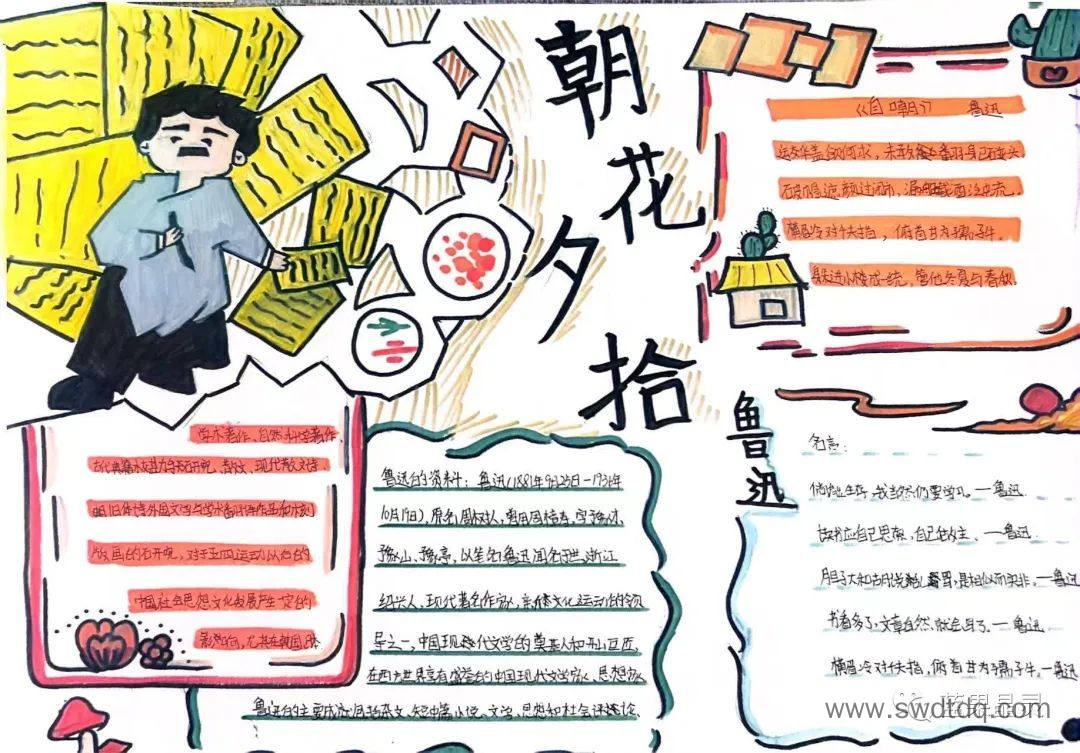 朝花夕拾
《自嘲》 鲁迅
运交华盖欲何求，未敢翻身已碰头
破帽遮颜过闹市，漏船载酒泛中流
横眉冷对千夫指，俯首甘为孺子牛。
躲进小楼成一统，管他冬夏与春秋。
学术著作、自然科学著作、
古代典籍
散文、现代散文诗
旧体诗外国文学与学术翻译作品和木刻
版画的研究，对于五四运动以后的
中国社会思想文化发展产生一定的
影响
鲁迅的资料：鲁迅(1881年9月25日-
10月19日)，原名周樟寿，
豫山、豫亭，以笔名鲁迅闻名于世，浙江
绍兴人，现代著名作家，新文化运动的领
导之一，中国现代文学的奠基人和开山巨匠，
在西方世界享有盛誉的中国现代文学家、思想家
鲁迅的主要成就包括杂文、短中篇小说、文学、思想和社会评论、
鲁迅
名言：
倘能生存，我当然仍要学习。——鲁迅
自己思索，自己做主、——鲁迅
书看多了，文章自然就会写了。——鲁迅
横眉冷对千夫指，俯首甘为孺子牛。——鲁迅
www.swdtdq.com